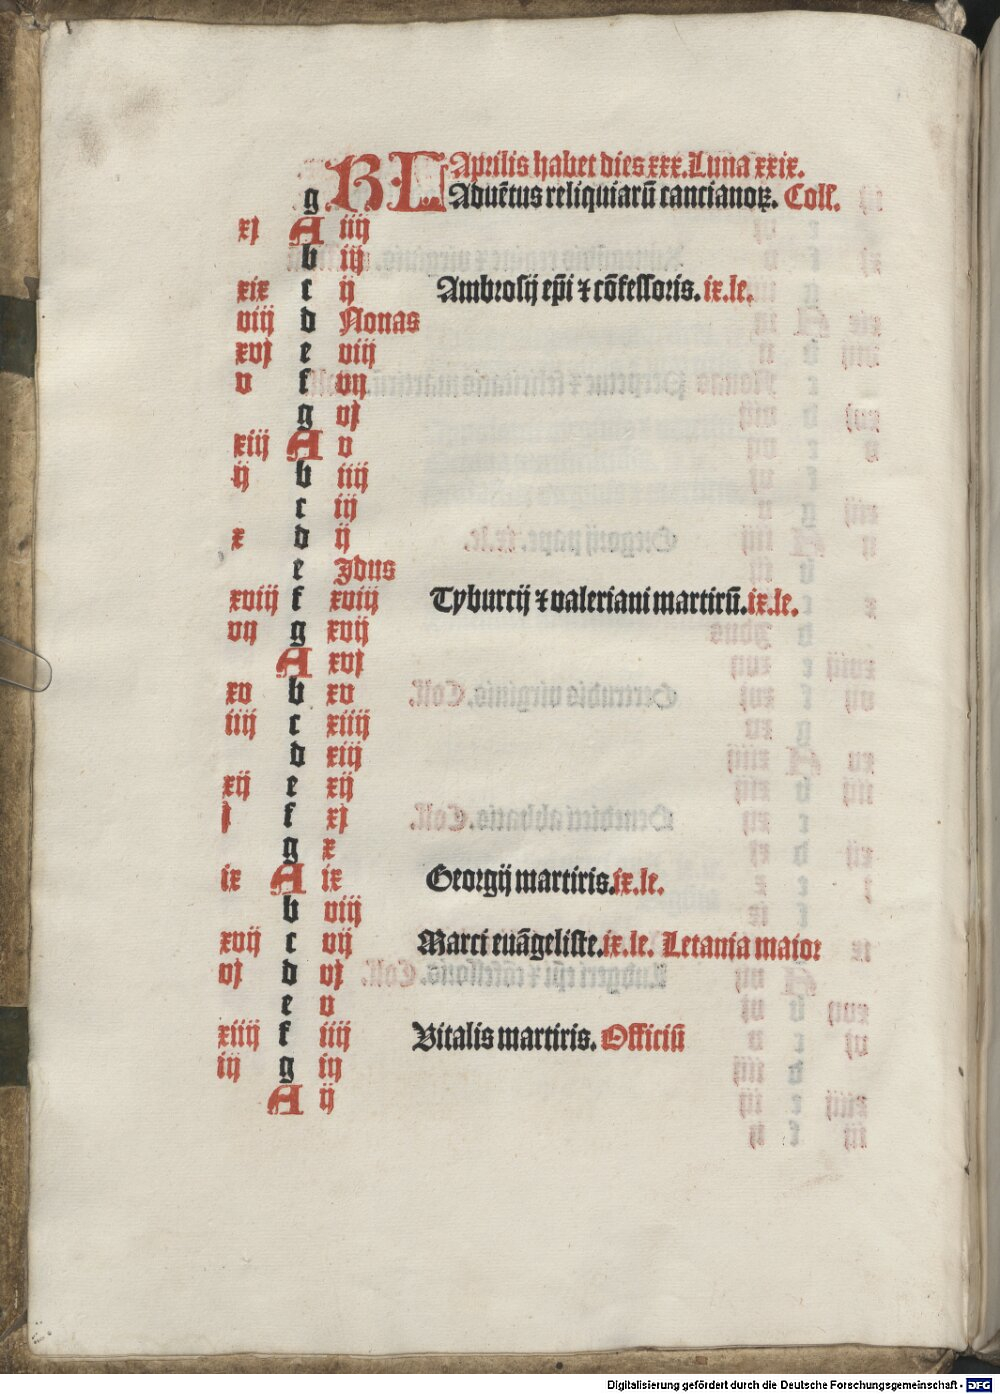 KL Aprilis habet dies xxx. Luna xxix.
g Aduētus reliquiarū cancianoꝝ. Coll.
xj A iiij
b iij
xix c ij Ambrosij ep̄i ⁊ cōfessoris. ix. le.
viij d Nonas
xvj e viij
v f vij
g vj
xiij A v
ij b iiij
c iij
x d ij
e Jdus
xviij f xviij Tyburcij ⁊ valeriani martirū. ix. le.
vij g xvij
A xvj
xv b xv
iiij c xiiij
d xiij
xij e xij
j f xj
g x
ix A ix Georgij martiris. ix. le.
b viij
xvij c vij Marci euāgeliste. ix. le. Letania maior
vj d vj
e v
xiiij f iiij Vitalis martiris. Officiū
iij g iij
A ij
Digitalisierung gefördert durch die Deutsche Forschungsgemeinschaft - DFG